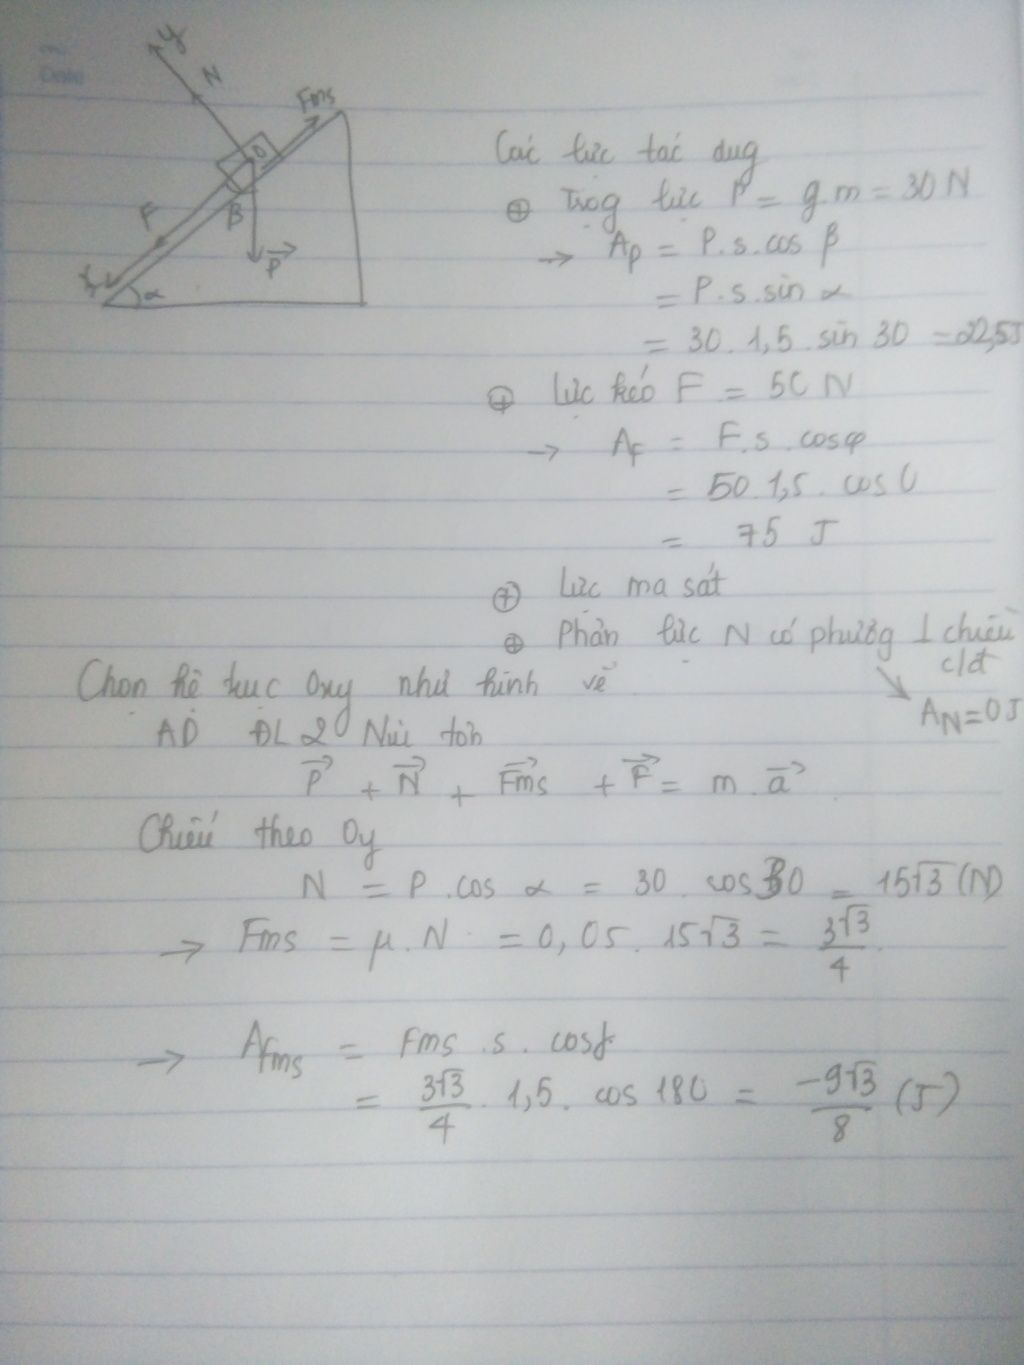 y
N
Fms
O
F
β
P
x
α
Các lực tác dụg
⊕ Trọg lực P = g.m = 30 N
→ Ap = P.s.cos β
= P.s.sin α
= 30. 1,5. sin 30 = 22,5J
⊕ Lực kéo F = 50 N
→ AF = F.s.cosφ
= 50.1,5. cos 0
= 75 J
⊕ Lực ma sát
⊕ Phản lực N có phươg ⊥ chiều
c/đ
↘ AN=0J
Chọn hệ trục Oxy như hình vẽ
AD ĐL 2 Niu tơn
P + N + Fms + F = m.a
Chiếu theo Oy
N = P.cos α = 30. cos30 = 15√3 (N)
→ Fms = μ.N = 0,05. 15√3 = 3√3/4
→ Afms = Fms.s.cos
= 3√3/4. 1,5. cos 180 = -9√3/8 (J)